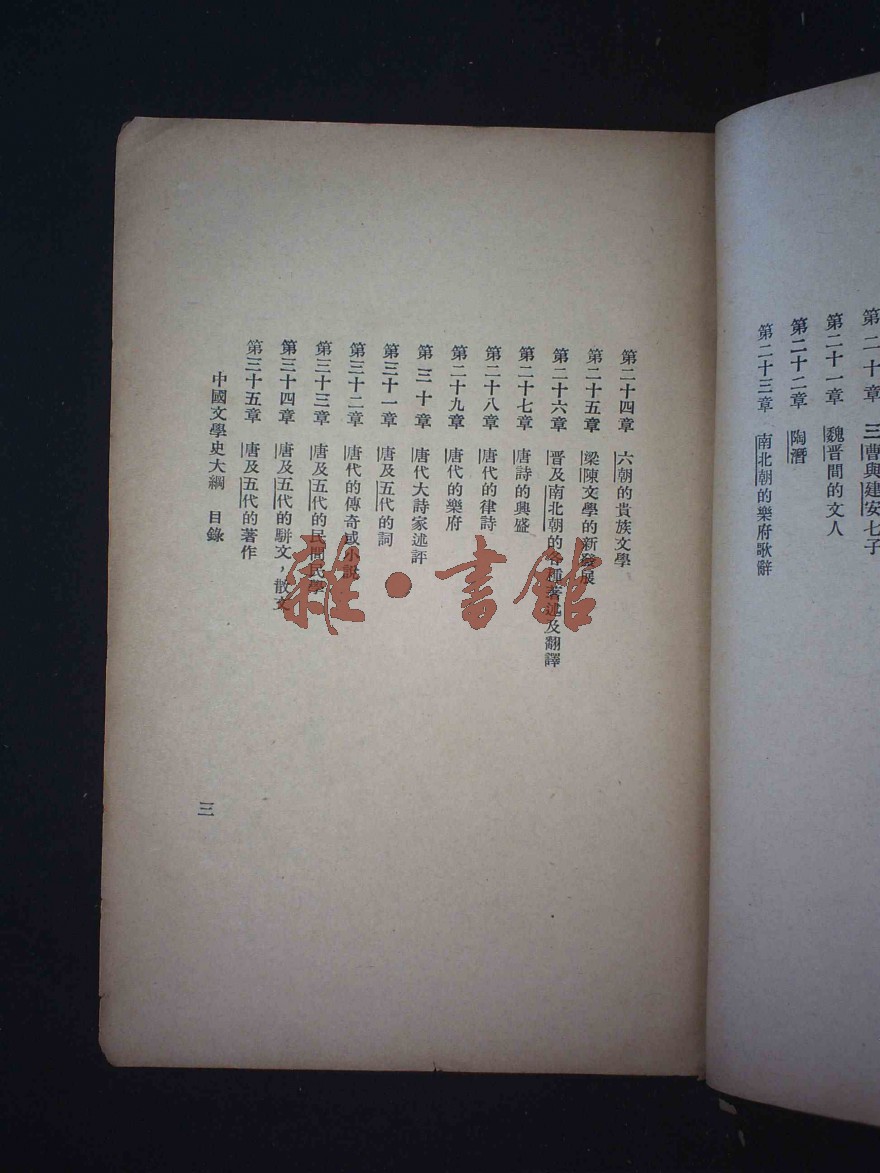 第二十章　三曹與建安七子
第二十一章　魏晋間的文人
第二十二章　陶潛
第二十三章　南北朝的樂府歌辭
第二十四章　六朝的貴族文學
第二十五章　梁陳文學的新發展
第二十六章　晋及南北朝的各種著述及翻譯
第二十七章　唐詩的興盛
第二十八章　唐代的律詩
第二十九章　唐代的樂府
第三十章　唐代大詩家述評
第三十一章　唐及五代的詞
第三十二章　唐代的傳奇或小說
第三十三章　唐及五代的民間民學
第三十四章　唐及五代的駢文，散文
第三十五章　唐及五代的著作
中國文學史大綱　目錄
三
雜·書館